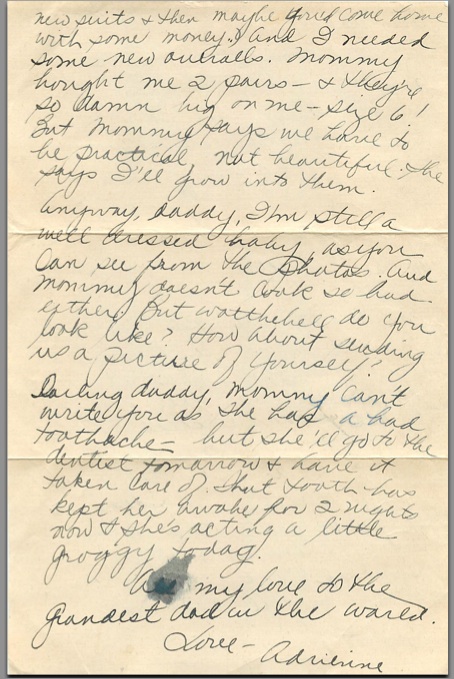 new suits & then maybe you'd come home
with some money. And I needed
some new overalls. Mommy
bought me 2 pairs - & they're
so damn big on me - size 6!
But Mommy says we have to
be practical, not beautiful. She
says I'll grow into them.
Anyway, daddy, I'm still a
well dressed baby, as you
can see from the photos. And
Mommy doesn't look so bad
either. But watthehell do you
look like? How about sending
us a picture of yourself?
Darling daddy, Mommy can't
write you as she has a bad
toothache - but she'll go to the
dentist tomorrow & have it
taken care of. That tooth has
kept her awake for 2 nights
now & she's acting a little
groggy today.
All my love to the
grandest dad in the world.
Love -
Adrienne